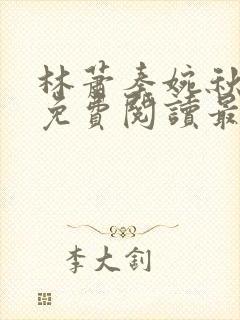 林萧秦婉秋
免費閱讀最
李大釗